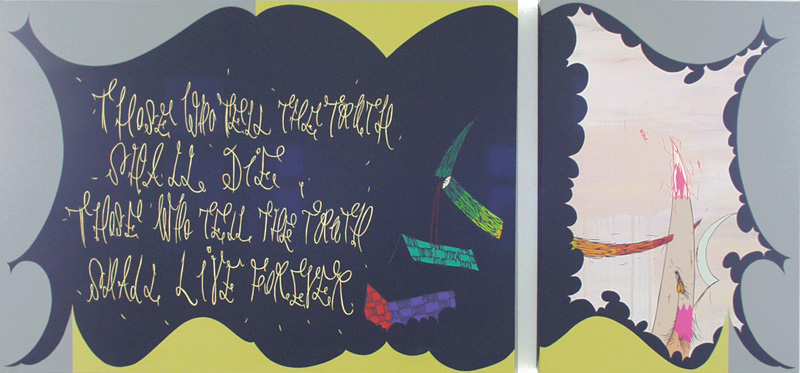 THOSE WHO TELL THE TRUTH
SHALL DIE,
THOSE WHO TELL THE TRUTH
SHALL LIVE FOREVER